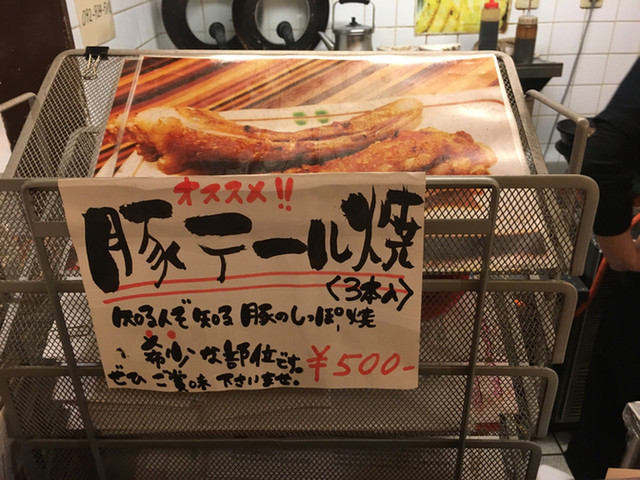 オススメ!!
豚テール焼
〈3本入〉
知る人ぞ知る 豚のしっぽ焼
希少な部位です。
ぜひご賞味下さいませ。
¥500-